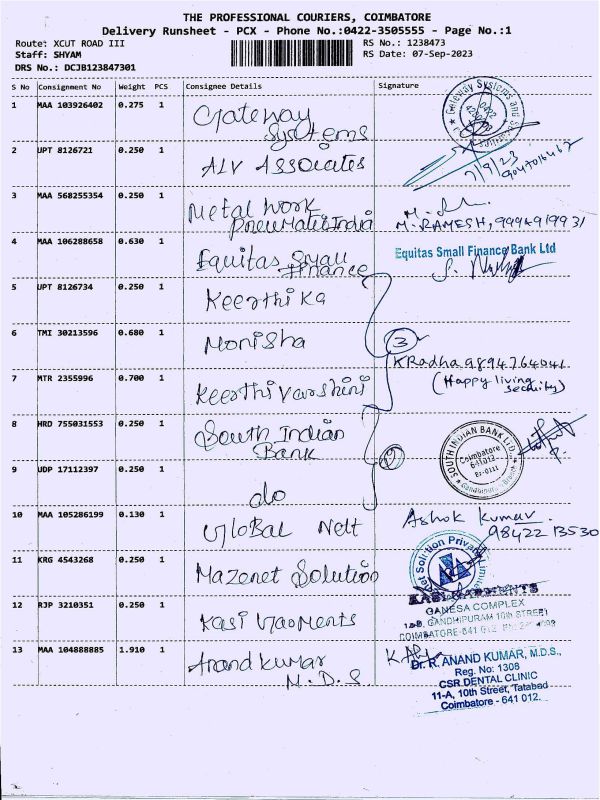 THE PROFESSIONAL COURIERS, COIMBATORE
Delivery Runsheet - PCX - Phone No.:0422-3505555 - Page No.:1
Route: XCUT ROAD III
Staff: SHYAM
DRS No.: DCJB123847301
RS No.: 1238473
RS Date: 07-Sep-2023
S No Consignment No Weight PCS Consignee Details Signature
1 MAA 103926402 0.275 1 Gateway Systems
Gateway Systems and
0422
7/9/23
2 UPT 8126721 0.250 1 ALV Associates
3 MAA 568255354 0.250 1 Metal Work
Pneumatic India
M. RAMESH, 9994919931
4 MAA 106288658 0.630 1 Equitas Small
Finance
Equitas Small Finance Bank Ltd
5 UPT 8126734 0.250 1 Keerthika
6 TMI 30213596 0.680 1 Monisha
3
K Radha 9894764041
(Happy living
security)
7 MTR 2355996 0.700 1 Keerthi Varshini
8 HRD 755031553 0.250 1 South Indian
Bank
2
SOUTH INDIAN BANK LTD.
Coimbatore
641012
9 UDP 17112397 0.250 1 do
10 MAA 105286199 0.130 1 Global Nett
Ashok Kumar
98422 13530
11 KRG 4543268 0.250 1 Mazenet Solution
12 RJP 3210351 0.250 1 Kasi Garments
KASI GARMENTS
GANESA COMPLEX
GANDHIPURAM 10th STREET
COIMBATORE-641 012
13 MAA 104888885 1.910 1 Anand Kumar
M.D.S
Dr. R. ANAND KUMAR, M.D.S.,
Reg. No: 1308
CSR DENTAL CLINIC
11-A, 10th Street, Tatabad
Coimbatore - 641 012.